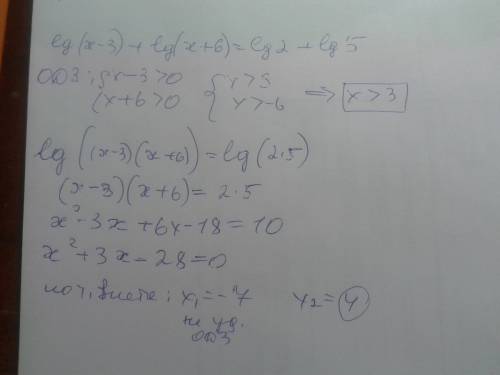 lg(x-3) + lg(x+6) = lg2 + lg5
ОДЗ: { x-3>0 { x>3
x+6>0 x>-6 ⟹ x>3
lg((x-3)(x+6)) = lg(2·5)
(x-3)(x+6) = 2·5
x²-3x+6x-18=10
x²+3x-28=0
по т. Виета: x₁=-7 x₂=4
не уд.
ОДЗ